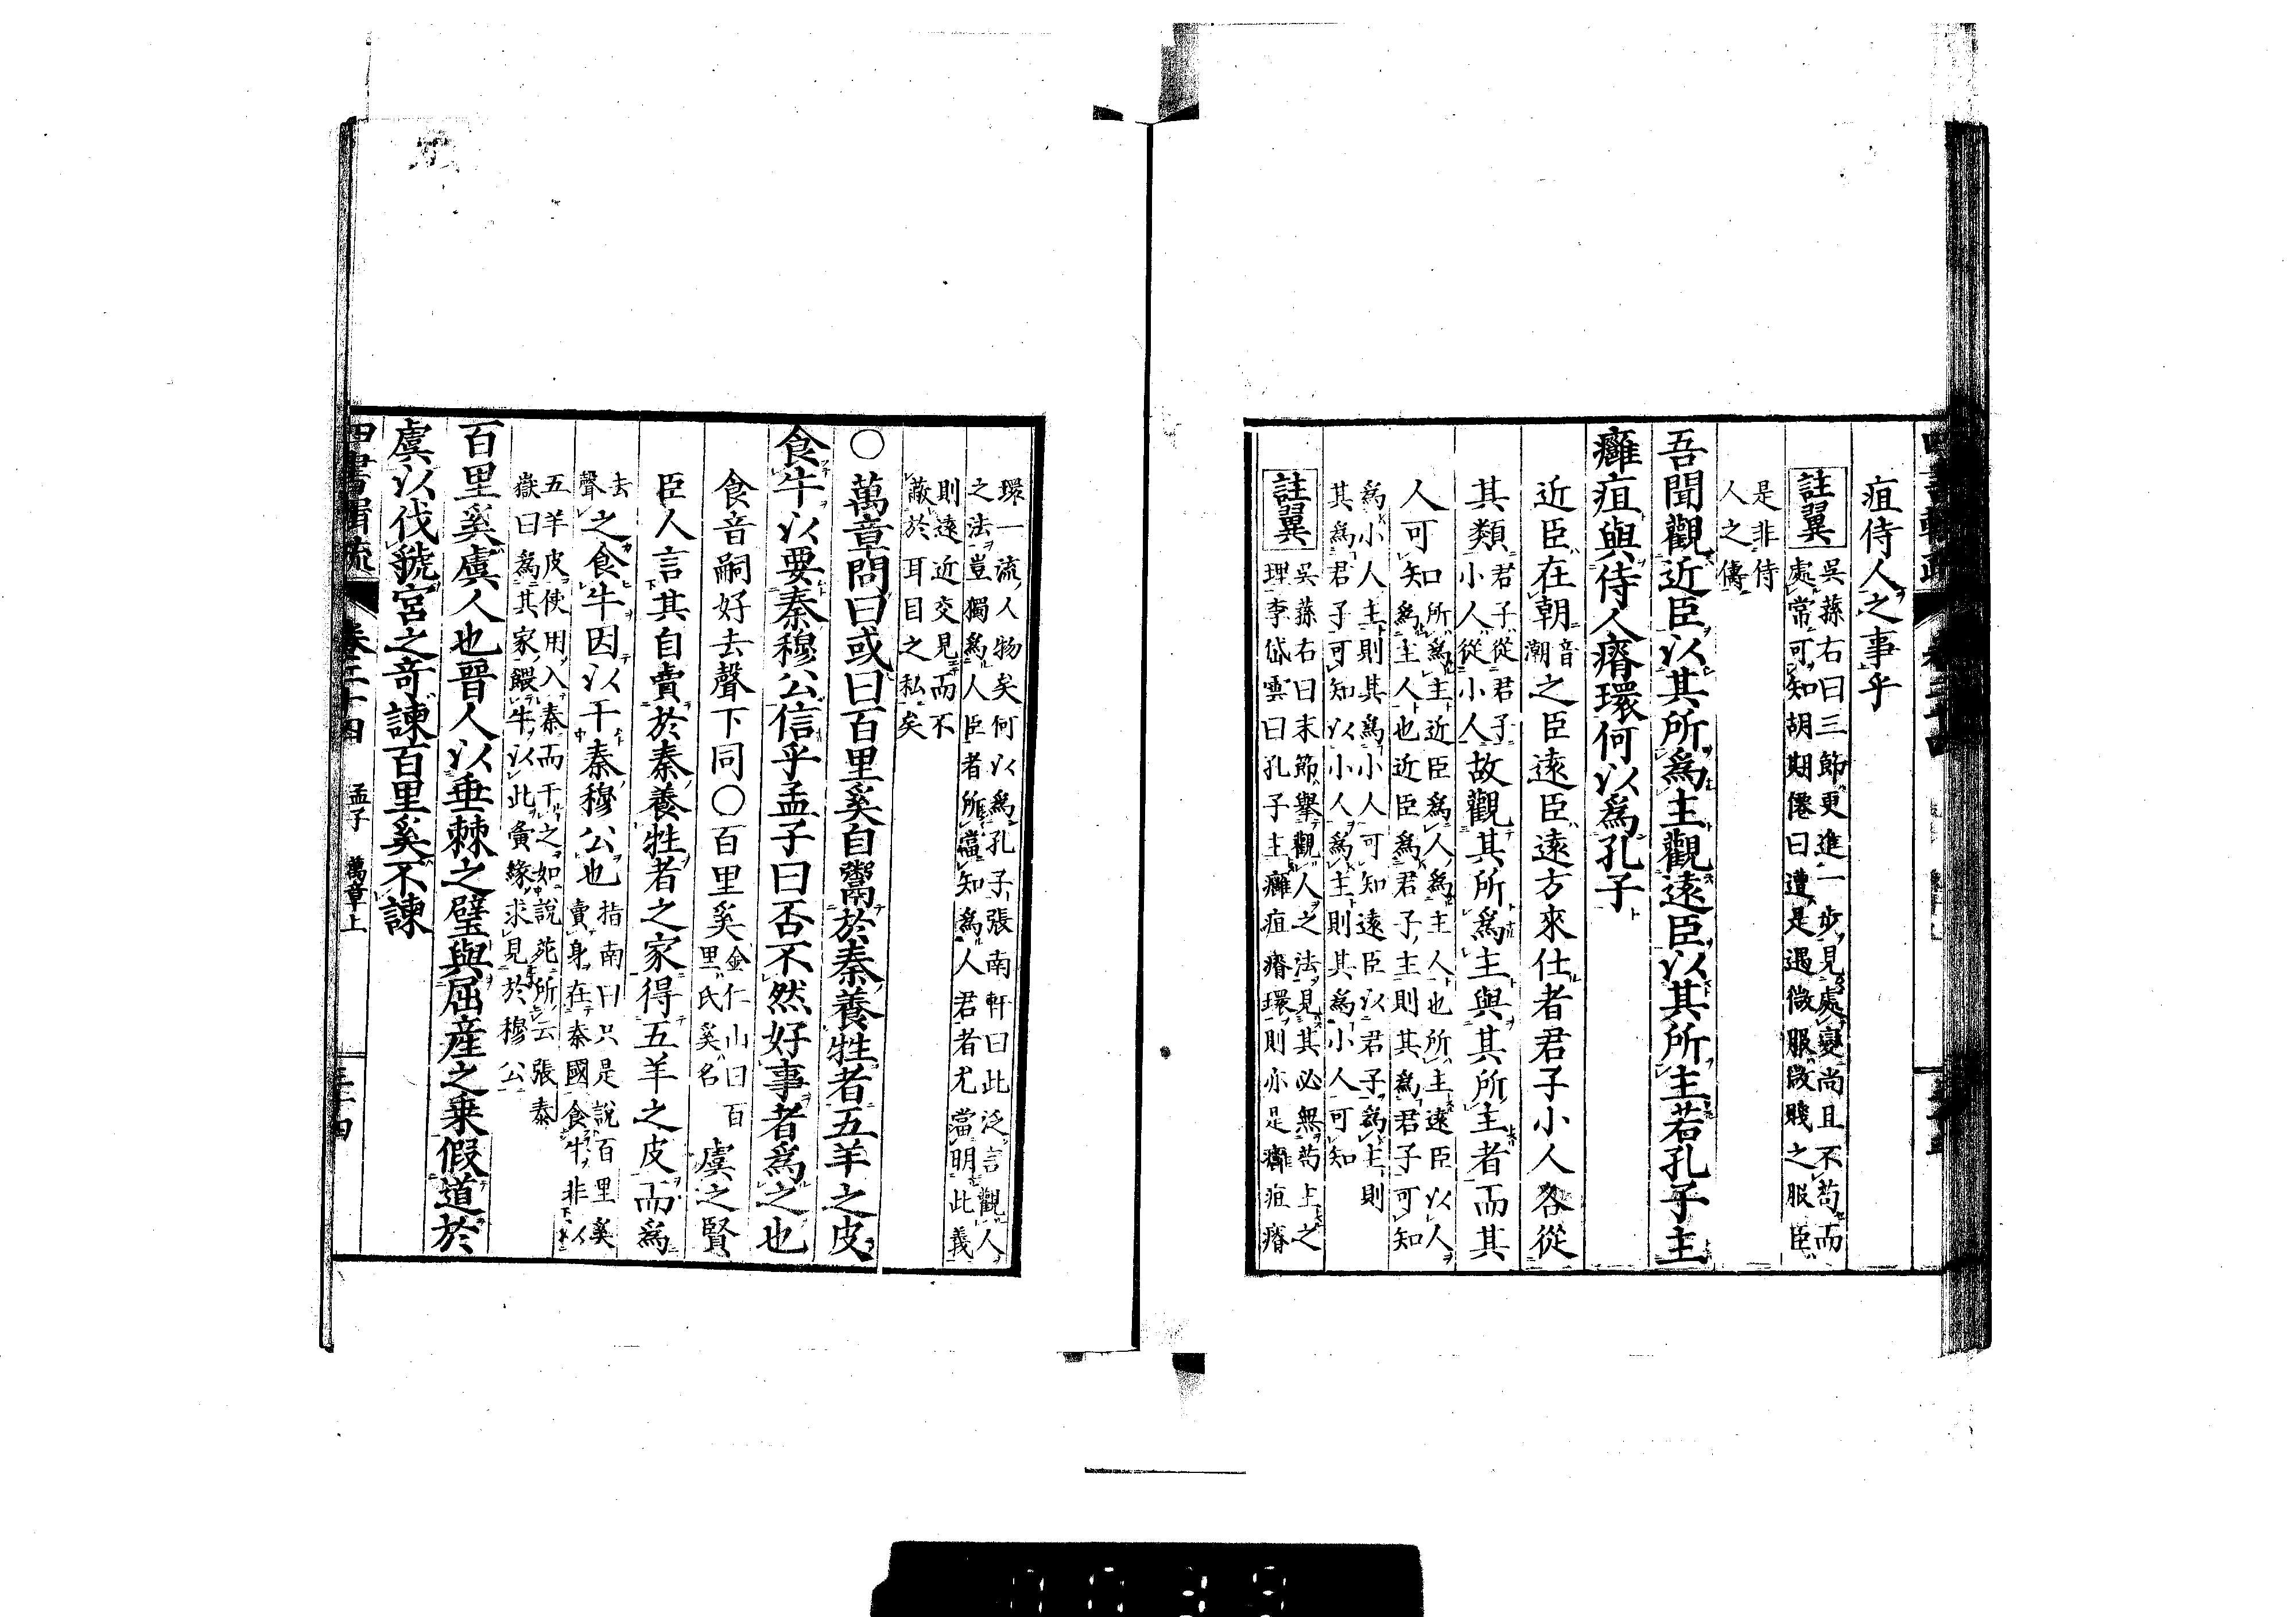 疽侍人之事乎
註翼
吳蓀右曰三節更進一步見處變尚且不苟而
處常可知胡期僊曰遭是遇微服微賤之服臣
是非侍
人之儔
吾聞觀近臣以其所爲主觀遠臣以其所主若孔子主
癰疽與侍人瘠環何以爲孔子
近臣在朝
音
潮
之臣遠臣遠方來仕者君子小人各從
其類
君子從君子
小人從小人
故觀其所爲主與其所主者而其
人可知
所爲主近臣爲人爲主人也所主遠臣以人
爲主人也近臣爲君子主則其爲君子可知
爲小人主則其爲小人可知遠臣以君子爲主則
其爲君子可知以小人爲主則其爲小人可知
註翼
吳蓀右曰末節擧觀人之法見其必無苟主之
理李岱雲曰孔子主癰疽瘠環則亦是癰疽瘠
環一流人物矣何以爲孔子張南軒曰此泛言觀人
之法豈獨爲人臣者所當知爲人君者尤當明此義
則遠近交見而不
蔽於耳目之私矣
○萬章問曰或曰百里奚自鬻於秦養牲者五羊之皮
食牛以要秦穆公信乎孟子曰否不然好事者爲之也
食音嗣好去聲下同○百里奚
金仁山曰百
里氏奚名
虞之賢
臣人言其自賣於秦養牲者之家得五羊之皮而爲
去
聲
之食牛因以干秦穆公也
指南曰只是說百里奚
賣身在秦國食牛非以
五羊皮使用入秦而干之如說苑所云張泰
嶽曰爲其家餵牛以此夤緣求見於穆公
百里奚虞人也晉人以垂棘之璧與屈産之乗假道於
虞以伐虢宮之奇諫百里奚不諫
四書輯疏 卷三十四 孟子 萬章上